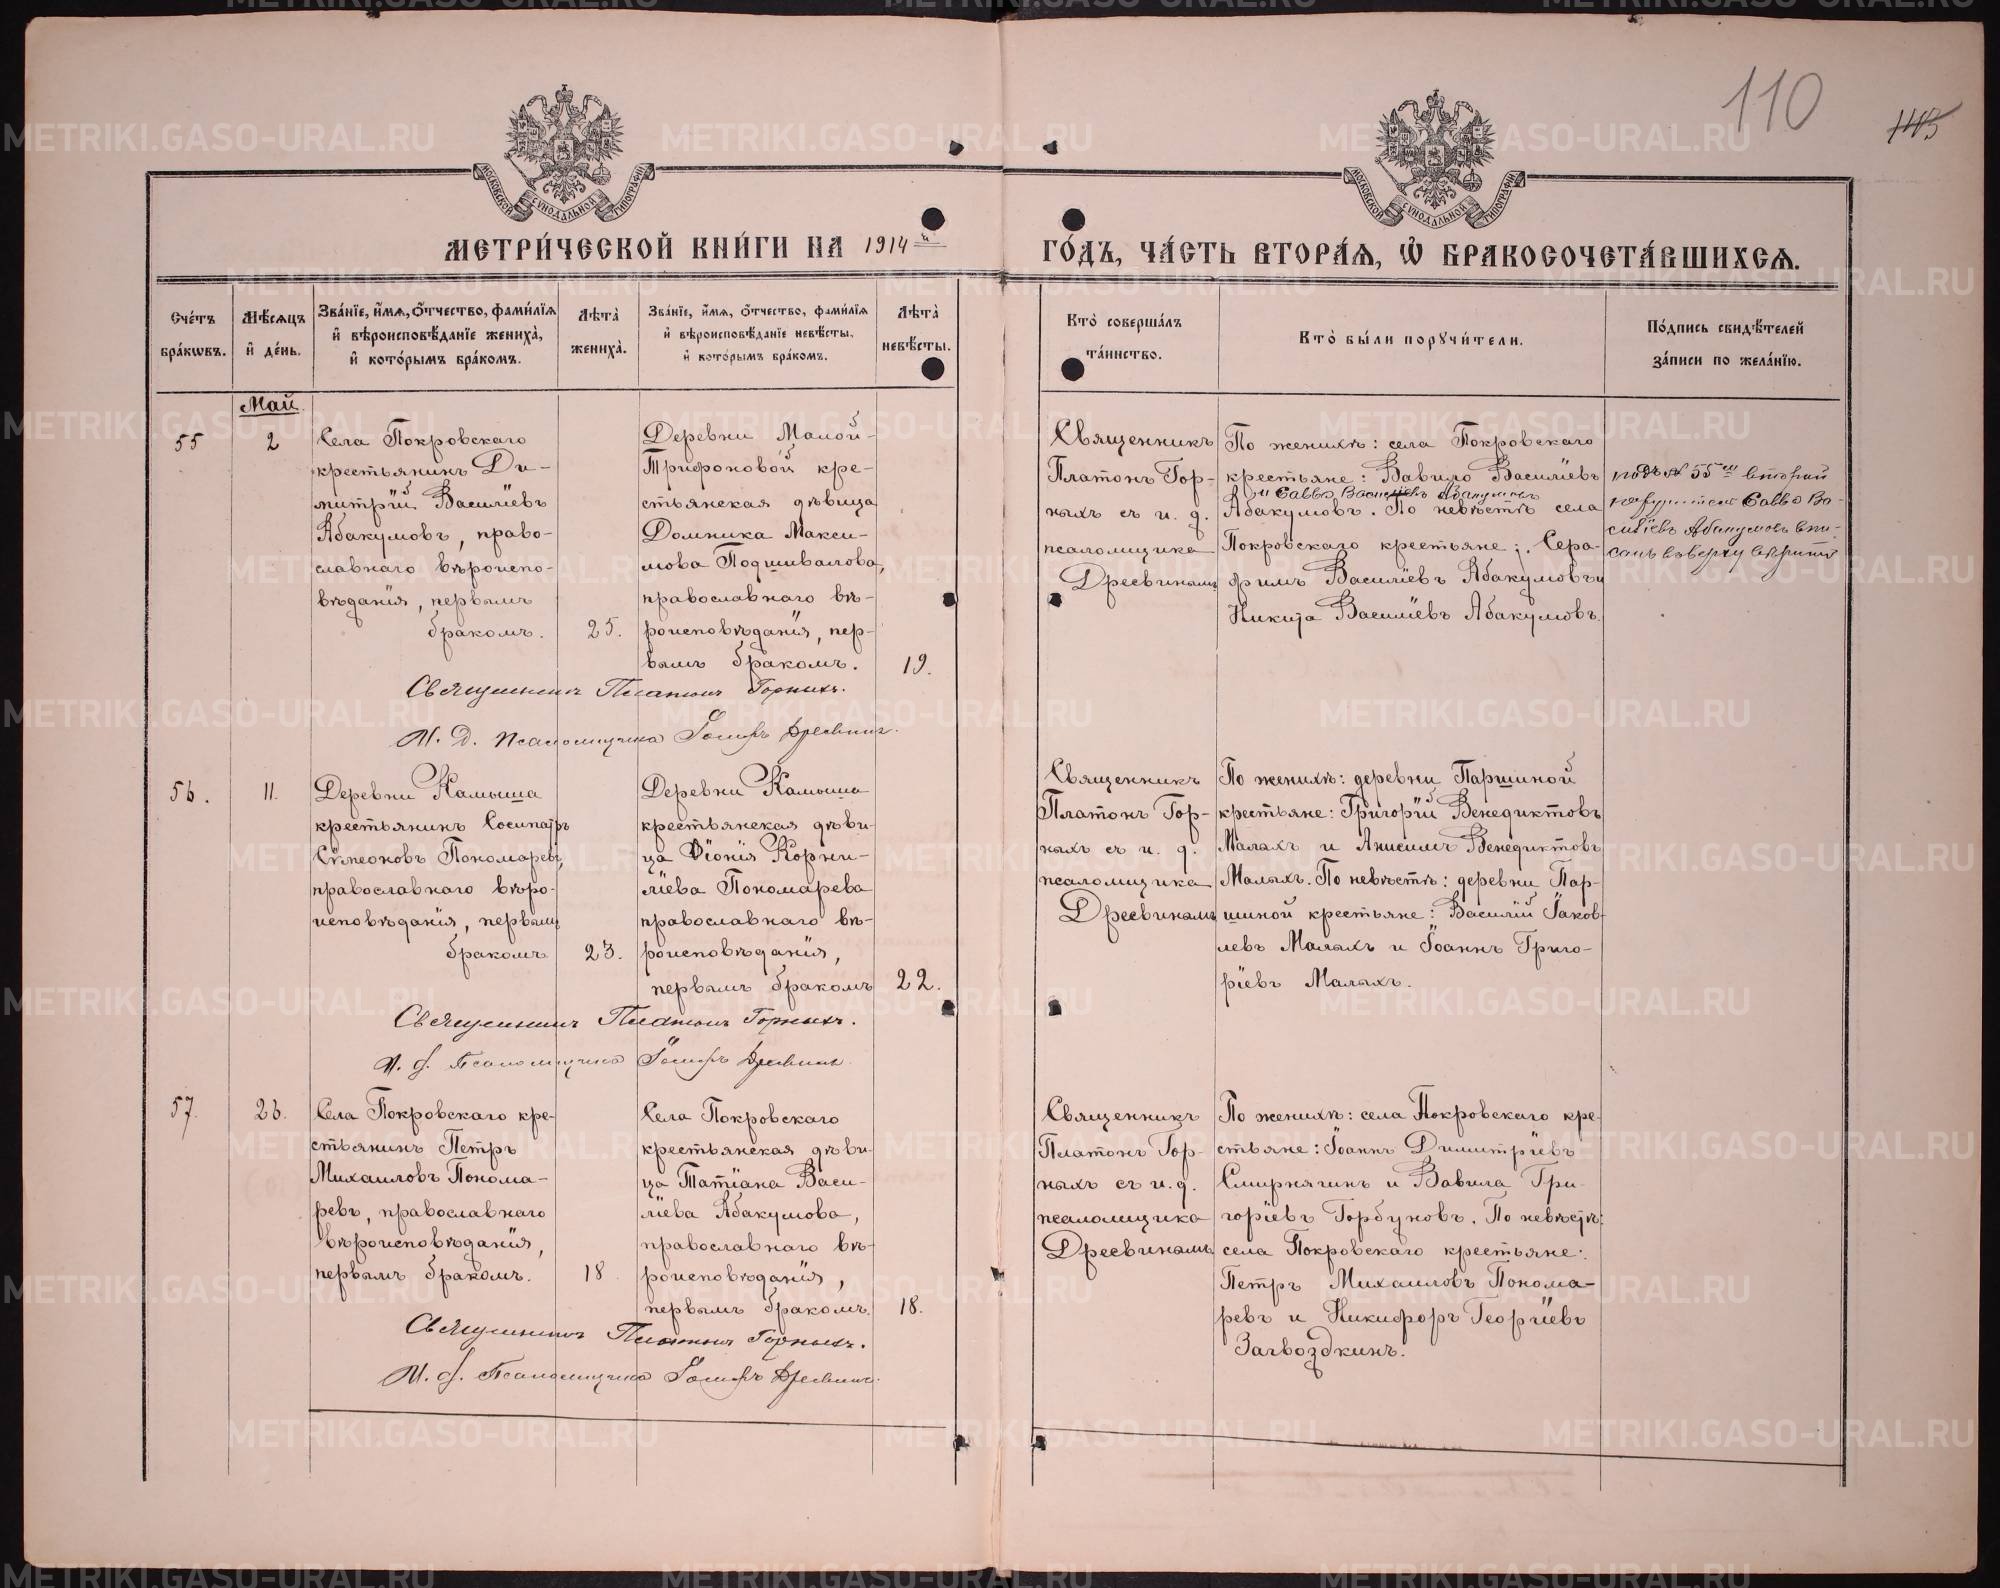 110
МОСКОВСКОЙ СѴНОДАЛЬНОЙ ТИПОГРАФІИ
МОСКОВСКОЙ СѴНОДАЛЬНОЙ ТИПОГРАФІИ
МЕТРИ́ЧЕСКОЙ КНИ́ГИ НА 1914 й
ГО́ДЪ, ЧА́СТЬ ВТОРА́Ѧ, Ѽ БРАКОСОЧЕТА́ВШИХСѦ.
Сче́тъ
бра́кѡвъ.
Мѣ́сѧцъ
и҆ де́нь.
Зва́нїе, и҆́мѧ, ѻ҆́тчество, фами́лїѧ
и҆ вѣроисповѣ́данїе жениха̀,
и҆ кото́рымъ бра́комъ.
Лѣ́та
жениха̀.
Зва́нїе, и҆́мѧ, ѻ҆́тчество, фами́лїѧ
и҆ вѣроисповѣ́данїе невѣ́сты,
и҆ кото́рымъ бра́комъ.
Лѣ́та
невѣ́сты.
Кто̀ соверша́лъ
та́инство.
Кто̀ бы́ли порꙋчи́тели.
По́дпись свидѣ́телей
за́писи по жела́нїю.
Май.
55
2
Села Покровскаго
крестьянинъ Ди-
митрій Василіевъ
Абакумовъ, право-
славнаго вѣроиспо-
вѣданія, первымъ
бракомъ.
25.
Деревни Малой-
Трифоновой кре-
стьянская дѣвица
Домника Макси-
мова Подшивалова,
православнаго вѣ-
роисповѣданія, пер-
вымъ бракомъ.
19.
Священникъ
Платонъ Гор-
ныхъ съ и. д.
псаломщика
Дресвинымъ
По женихѣ: села Покровскаго
крестьяне: Вавило Василіевъ
и Савво Василіевъ Абакумовъ
Абакумовъ. По невѣстѣ села
Покровскаго крестьяне: Сера-
фимъ Василіевъ Абакумовъ и
Никита Василіевъ Абакумовъ.
подъ № 55 м второй
поручитель Савво Ва-
силіевъ Абакумовъ впи-
санъ вверху
Священникъ Платонъ Горныхъ.
И. д. псаломщика Іосифъ Дресвинъ.
56.
11.
Деревни Камыша
крестьянинъ Сосипатръ
Сѵмеоновъ Пономаревъ,
православнаго вѣро-
исповѣданія, первымъ
бракомъ
23.
Деревни Камыша
крестьянская дѣви-
ца Ѳіонія Корни-
ліева Пономарева
православнаго вѣ-
роисповѣданія,
первымъ бракомъ
22.
Священникъ
Платонъ Гор-
ныхъ съ и. д.
псаломщика
Дресвинымъ
По женихѣ: деревни Паршиной
крестьяне: Григорій Венедиктовъ
Малыхъ и Анисимъ Венедиктовъ
Малыхъ. По невѣстѣ: деревни Пар-
шиной крестьяне: Василій Іаков-
левъ Малыхъ и Іоаннъ Григо-
ріевъ Малыхъ.
Священникъ Платонъ Горныхъ.
И. д. Псаломщика Іосифъ Дресвинъ.
57.
26.
Села Покровскаго кре-
стьянинъ Петръ
Михаиловъ Понома-
ревъ, православнаго
вѣроисповѣданія,
первымъ бракомъ.
18
Села Покровскаго
крестьянская дѣви-
ца Татіана Васи-
ліева Абакумова,
православнаго вѣ-
роисповѣданія,
первымъ бракомъ.
18.
Священникъ
Платонъ Гор-
ныхъ съ и. д.
псаломщика
Дресвинымъ
По женихѣ: села Покровскаго кре-
стьяне: Іоаннъ Димитріевъ
Смирнягинъ и Вавила Гри-
горіевъ Горбуновъ. По невѣстѣ:
села Покровскаго крестьяне:
Петръ Михаиловъ Понома-
ревъ и Никифоръ Георгіевъ
Загвоздкинъ.
Священникъ Платонъ Горныхъ.
И. д. Псаломщика Іосифъ Дресвинъ.
METRIKI.GASO-URAL.RU